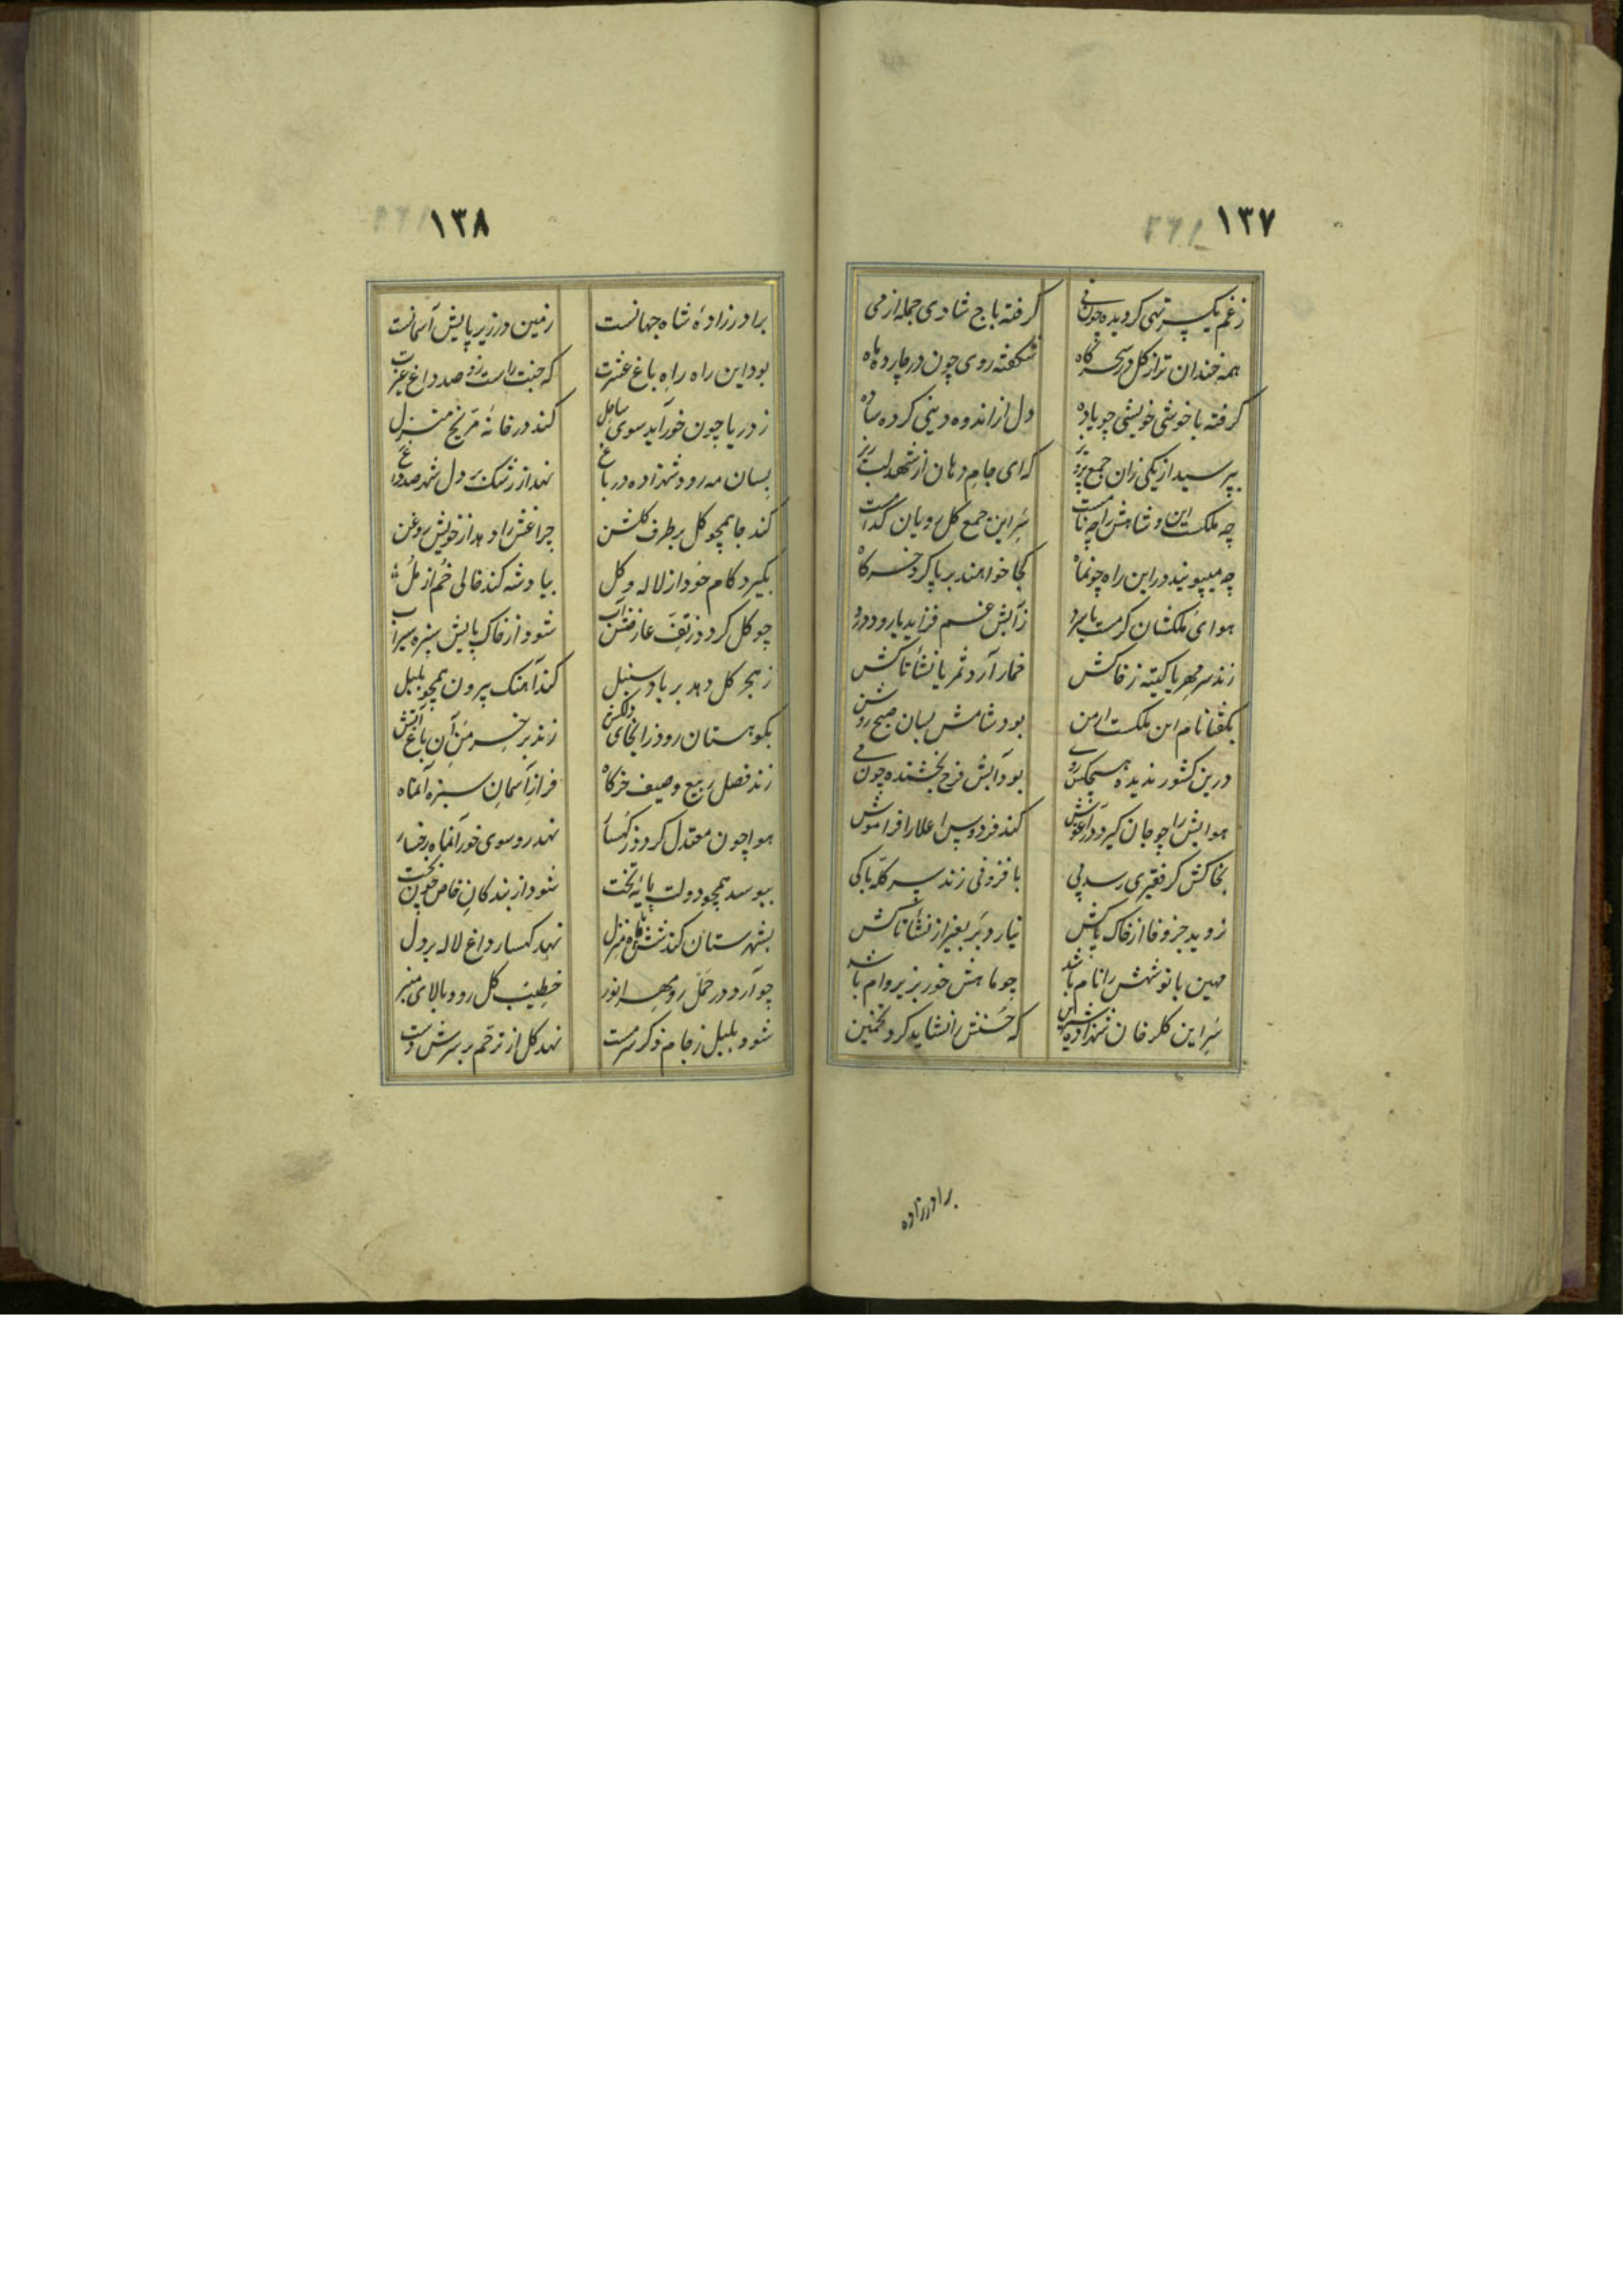 ۱۳۷
زغم یکسر تهی گردیده چون نی گرفته باج شادی جمله از می
همه خندان تر از گل در سحرگاه شکفته روی چون در چارده ماه
گرفته با خوشی خویشی چو باده دل از اندوه دینی کرده ساده
بپرسید از یکی زان جمع که ای جام دهان از شهد لبریز
چه ملکست این و شاهش را چه نامست سر این جمع گل رویان کدامست
چه میپویند در این راه چونماه کجا خواهند برپا کرد خرگاه
هوای ملکشان گرمست یا سرد زآبش غم فزاید یا رود درد
زند سر مهر یا کینه ز خاکش خمار آرد ثمر یا نشأ تاکش
بگفتا نام این ملکست ارمن بود شامش بسان صبح روشن
درین کشور ندیده هیچکس بود آبش فرح بخشنده چون می
هوایش را چو جان گیرد در آغوش کند فردوس اعلا را فراموش
بخاکش گر فقیری رسد پی با فزونی زند سر کله با کی
نروید جز وفا از خاک پاکش نیارد بر بغیر از نشأ تاکش
مهین بانو شهش را نام باشد چو ماهش خور بزیر وام باشد
سر این گلرخان شهزاده شیرین که حسنش را نشاید کرد تخمین
برادرزاده
۱۳۸
برادرزادهٔ شاه جهانست زمین در زیر پایش آسمانست
بود این راه راه باغ عشرت که جنت راست زو صد داغ غیرت
ز دریا چون خور آید سوی ساحل کند در خانهٔ مریخ منزل
بسان مه رود شهزاده در باغ نهد از رشک بر دل شهر صد داغ
کند جا همچو گل بر طرف گلشن چراغش را دهد از خویش روغن
بگیرد کام خود از لاله و گل بیاد شه کند خالی خم از مل
چو گل گردد ز تف عارضش آب شود از خاک پایش سبزه سیراب
ز هجر گل دهد بر باد سنبل کند آهنگ بیرون همچو بلبل
بکوهستان رود زانجای دلکش زند بر خرمن آن باغ آتش
زند فصل ربیع و صیف خرگاه فراز آسمان سبزه آنماه
هوا چون معتدل گردد ز کهسار نهد رو سوی خور آنماه رخسار
ببوسد همچو دولت پایهٔ تخت شود از بندگان خاص خود بخت
بشهرستان کند شش ماه منزل نهد کهسار داغ لاله بر دل
چو آرد در حمل رو مهر انور خطیب گل رود بالای منبر
شود بلبل ز جام ذکر سرمست نهد گل از ترحم بر سرش دست